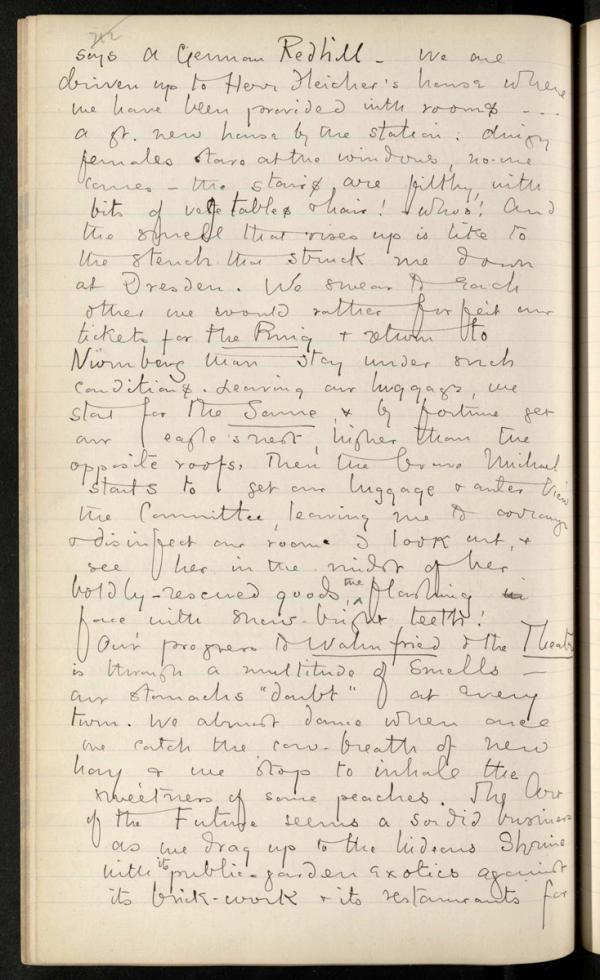 says a German Redhill - we are
driven up to Herr Fleicher's house where
we have been provided with rooms - ...
a gt. new house by the station. dingy
females stare at the windows, no-one
comes - the stairs are filthy, with
bits of vegetables & hair! & whoo! And
the smell that rises up is like to
the stench that struck me down
at Dresden. We swear to each
other we would rather forfeit our
tickets for the Ring & return to
Nürnberg than stay under such
conditions. Leaving our luggage, we
start for the Sonne, & by fortune get
our eagle's nest, higher than the
opposite roofs. Then the brave Michael
starts to get our luggage & inter view
the Committee, leaving me to arrange
& disinfect our room. I look out, &
see her in the midst of her
boldly-rescued goods, the flashing
face with snow-bright teeth!
Our progress to Wahnfried & the Theatre
is through a multitude of smells -
our stomachs "doubt" at every
turn. We almost dance when once
we catch the cow-breath of new
hay, & we stop to inhale the
sweetness of some peaches. The Art
of the Future seems a sordid business
as we drag up to the hideous Shrine
with its public-garden exotics against
its brick-work & its restaurants for